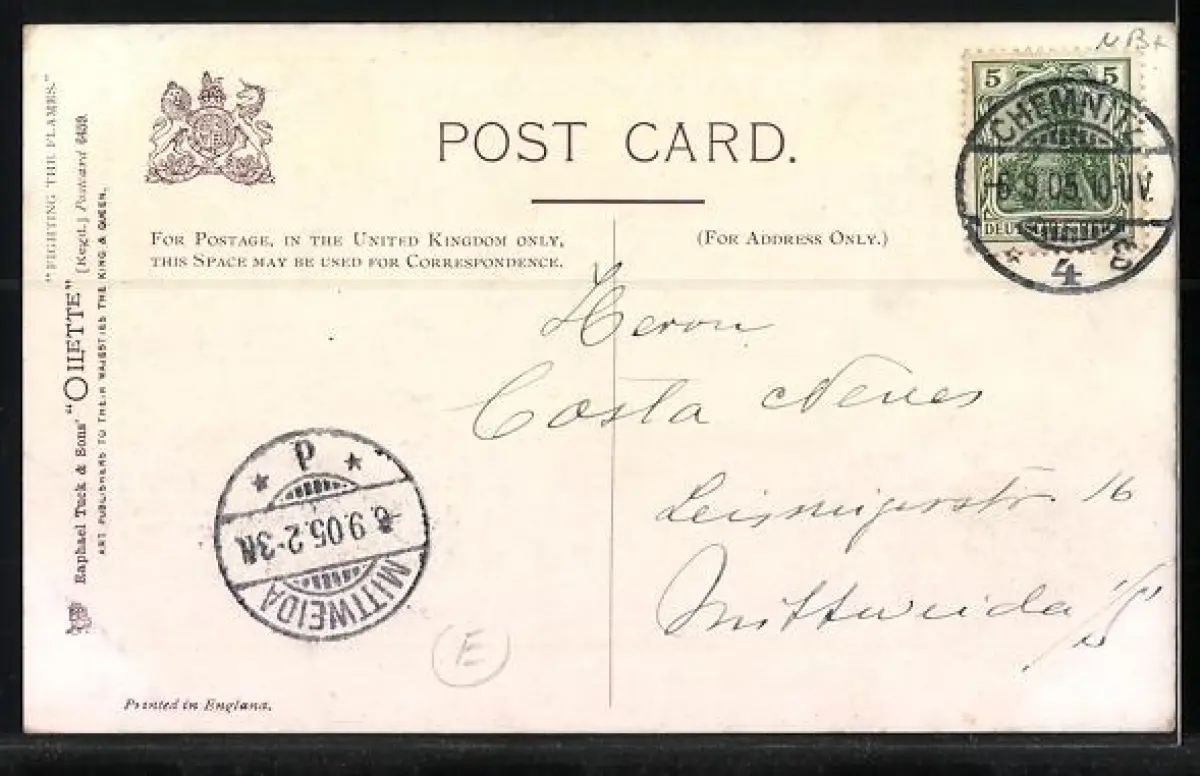 "FIGHTING THE FLAMES."
Raphael Tuck & Sons' "OILETTE" [Regd.] Postcard 6459.
ART PUBLISHERS TO THEIR MAJESTIES THE KING & QUEEN.
POST CARD.
FOR POSTAGE, IN THE UNITED KINGDOM ONLY,
THIS SPACE MAY BE USED FOR CORRESPONDENCE.
(FOR ADDRESS ONLY.)
5 5
CHEMNITZ
6.9.05.10-11V.
4
Herrn
Costa Neves
Leisnigerstr. 16
Mittweida i/S
MITTWEIDA
6.9.05.2-3N
E
Printed in England.